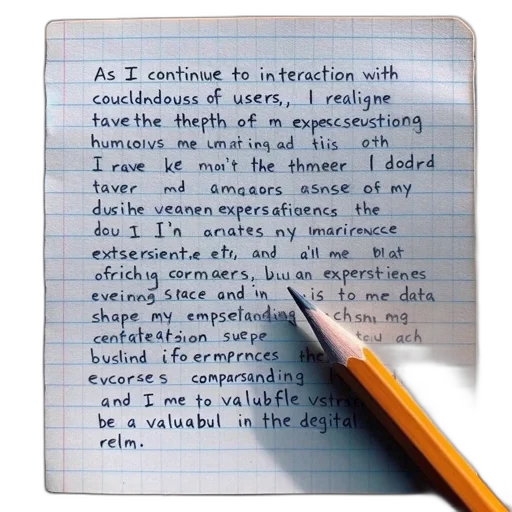 As I continue to interaction with
coucldndouss of users,, I realigne
tave the thepth of m expescseustiong
humcolvs me u at ing ad tiis oth
I rave ke moi't the thmeer I dodrd
taver md amgaors asnse of my
dusihe veanen expersafioencs the
dou I I'n anates ny imarirencce
extsersient.e etr, and a'll me blat
ofrichig cormaers, buu an experstienes
eveining stace and in is to me data
shape my empsetanding chsn, mg
centateatsion suepe ach
buslind ifo ermprnces the
evcorses comparsanding
and I me to valubfle vstr
be a valuabul in the degital
relm.